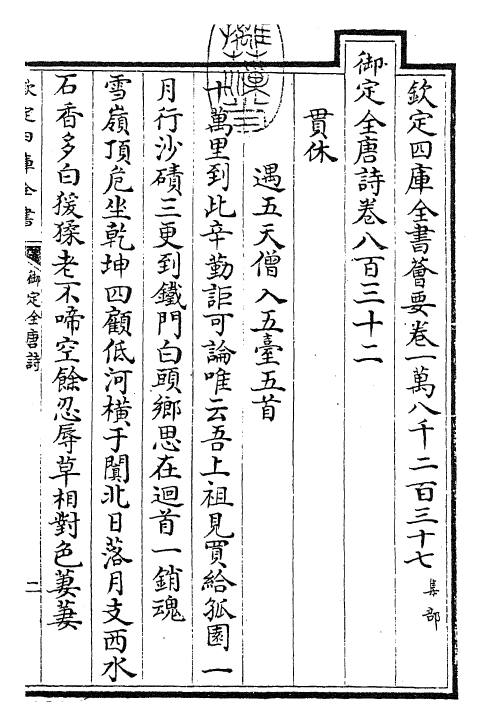 欽定四庫全書薈要卷一萬八千二百三十七 集部
御定全唐詩卷八百三十二
貫休
遇五天僧入五臺五首
十萬里到此辛勤詎可論唯云吾上祖見買給孤園一
月行沙磧三更到鐵門白頭鄉思在迴首一銷魂
雪嶺頂危坐乾坤四顧低河橫于闐北日落月支西水
石香多白猨猱老不啼空餘忍辱草相對色萋萋
欽定四庫全書
御定全唐詩